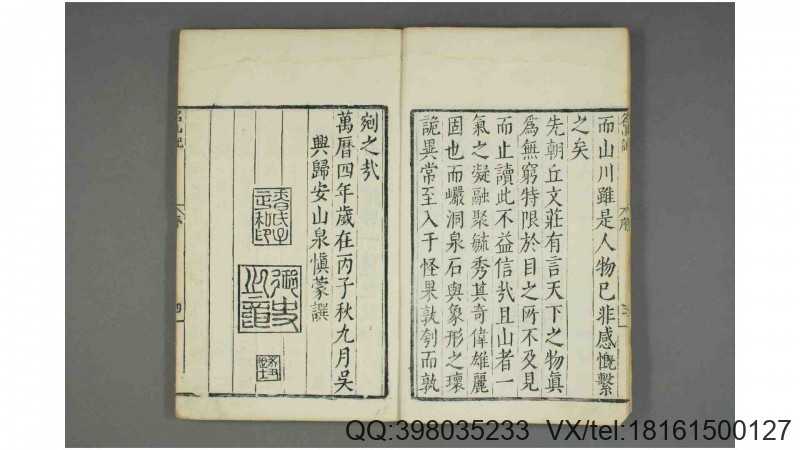 而山川雖是人物已非感慨繫
之矣
先朝丘文莊有言天下之物眞
爲無窮特限於目之所不及見
而止讀此不益信㢤且山者一
氣之凝融聚毓秀其奇偉雄麗
固也而巖洞泉石與象形之瓌
詭異常至入于怪果孰刳而孰
剜之㢤
萬曆四年歲在丙子秋九月吳
興歸安山泉愼蒙譔
御史之章
QQ:398035233 VX/tel:18161500127